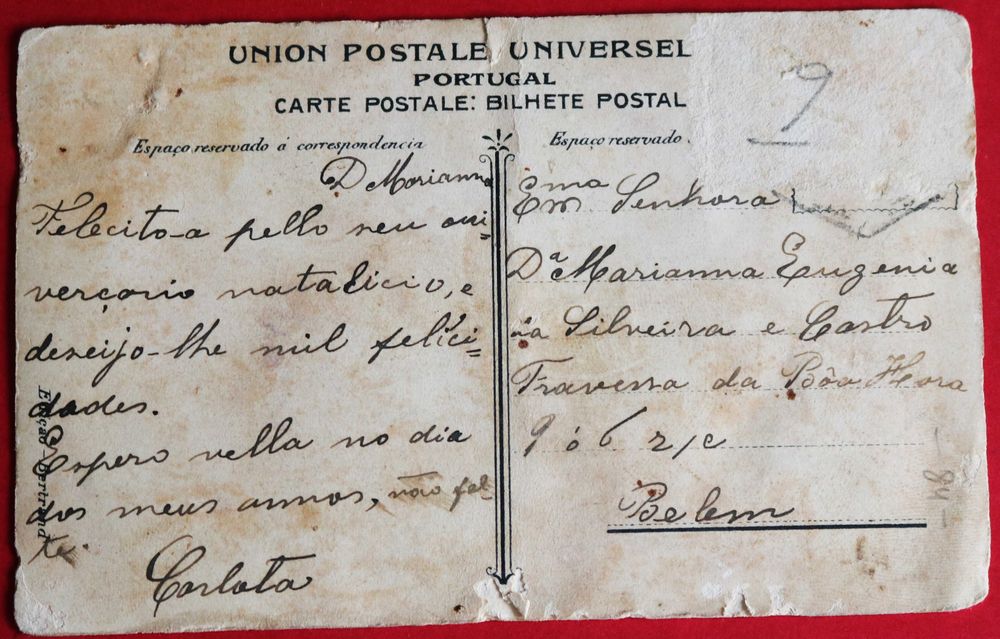 UNION POSTALE UNIVERSEL
PORTUGAL
CARTE POSTALE: BILHETE POSTAL
Espaço reservado á correspondencia
D Marianna
Felecito-a pello seu ani-
verçario natalicio, e
deseijo-lhe mil felici-
dades.
Espero vella no dia
dos meus annos, não fal-
te.
Carlota
Edição Bertrand
Espaço reservado
9
Exma Senhora
Da Marianna Eugenia
da Silveira e Castro
Travessa da Bôa Hora
9 ó 6 r/c
Belem
84